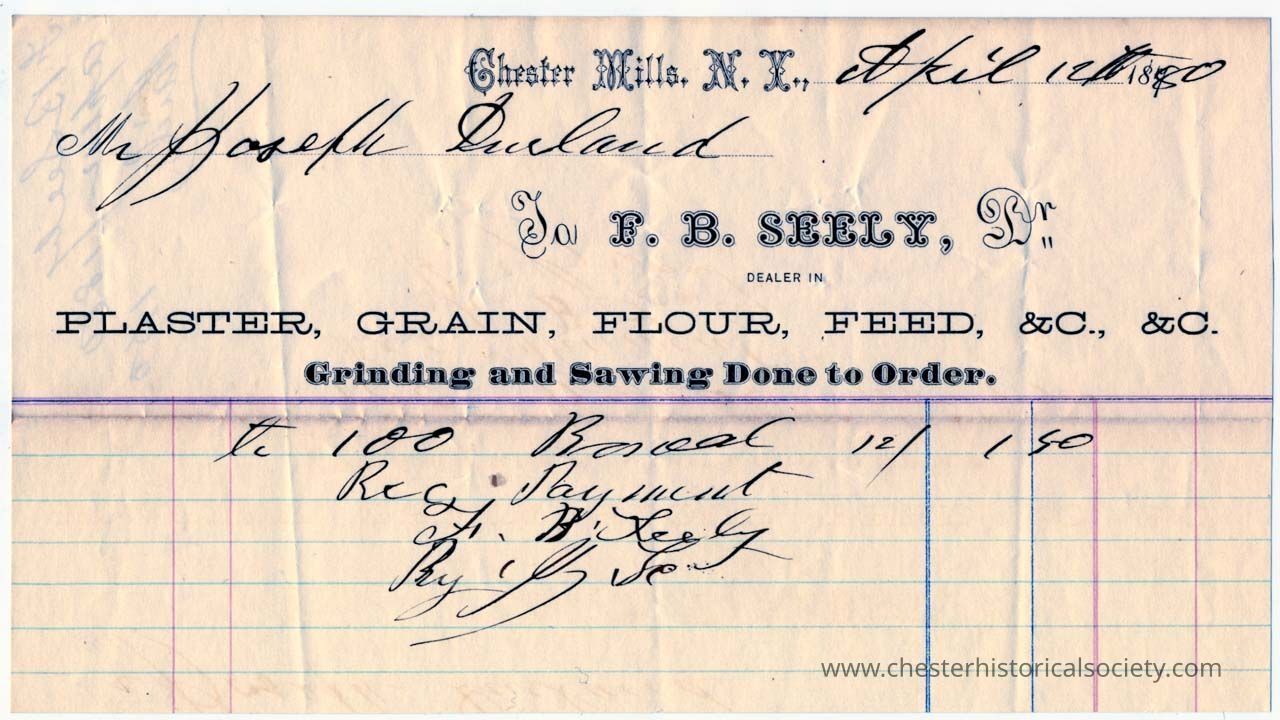 Chester Mills. N. Y., April 12th 1880
Mr Joseph Durland
To F. B. SEELY, Dr
DEALER IN
PLASTER, GRAIN, FLOUR, FEED, &C., &C.
Grinding and Sawing Done to Order.
to 100 12/ 1 50
Rec. Payment
F. B. Seely
By
www.chesterhistoricalsociety.com